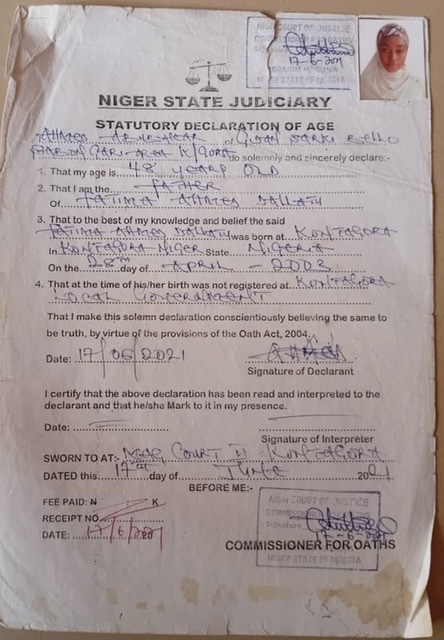 HIGH COURT OF JUSTICE
17-6-2021
NIGER STATE JUDICIARY
STATUTORY DECLARATION OF AGE
AHMED of
do solemnly and sincerely declare:-
1. That my age is 48 YEARS OLD
2. That I am the FATHER
Of FATIMA AHMED DALLATU
3. That to the best of my knowledge and belief the said
FATIMA AHMED DALLATU was born at KONTAGORA
In KONTAGORA NIGER State NIGERIA
On the 28TH day of APRIL - 2003
4. That at the time of his/her birth was not registered at KONTAGORA
LOCAL GOVERNMENT
That I make this solemn declaration conscientiously believing the same to
be truth, by virtue of the provisions of the Oath Act, 2004.
Date: 17/06/2021
Signature of Declarant
I certify that the above declaration has been read and interpreted to the
declarant and that he/she Mark to it in my presence.
Date:
Signature of Interpreter
SWORN TO AT:- COURT II KONTAGORA
DATED this 17TH day of JUNE 2021
BEFORE ME:-
FEE PAID: N K
RECEIPT NO.
DATE: 17/6/2021
HIGH COURT OF JUSTICE
17-6-2021
COMMISSIONER FOR OATHS